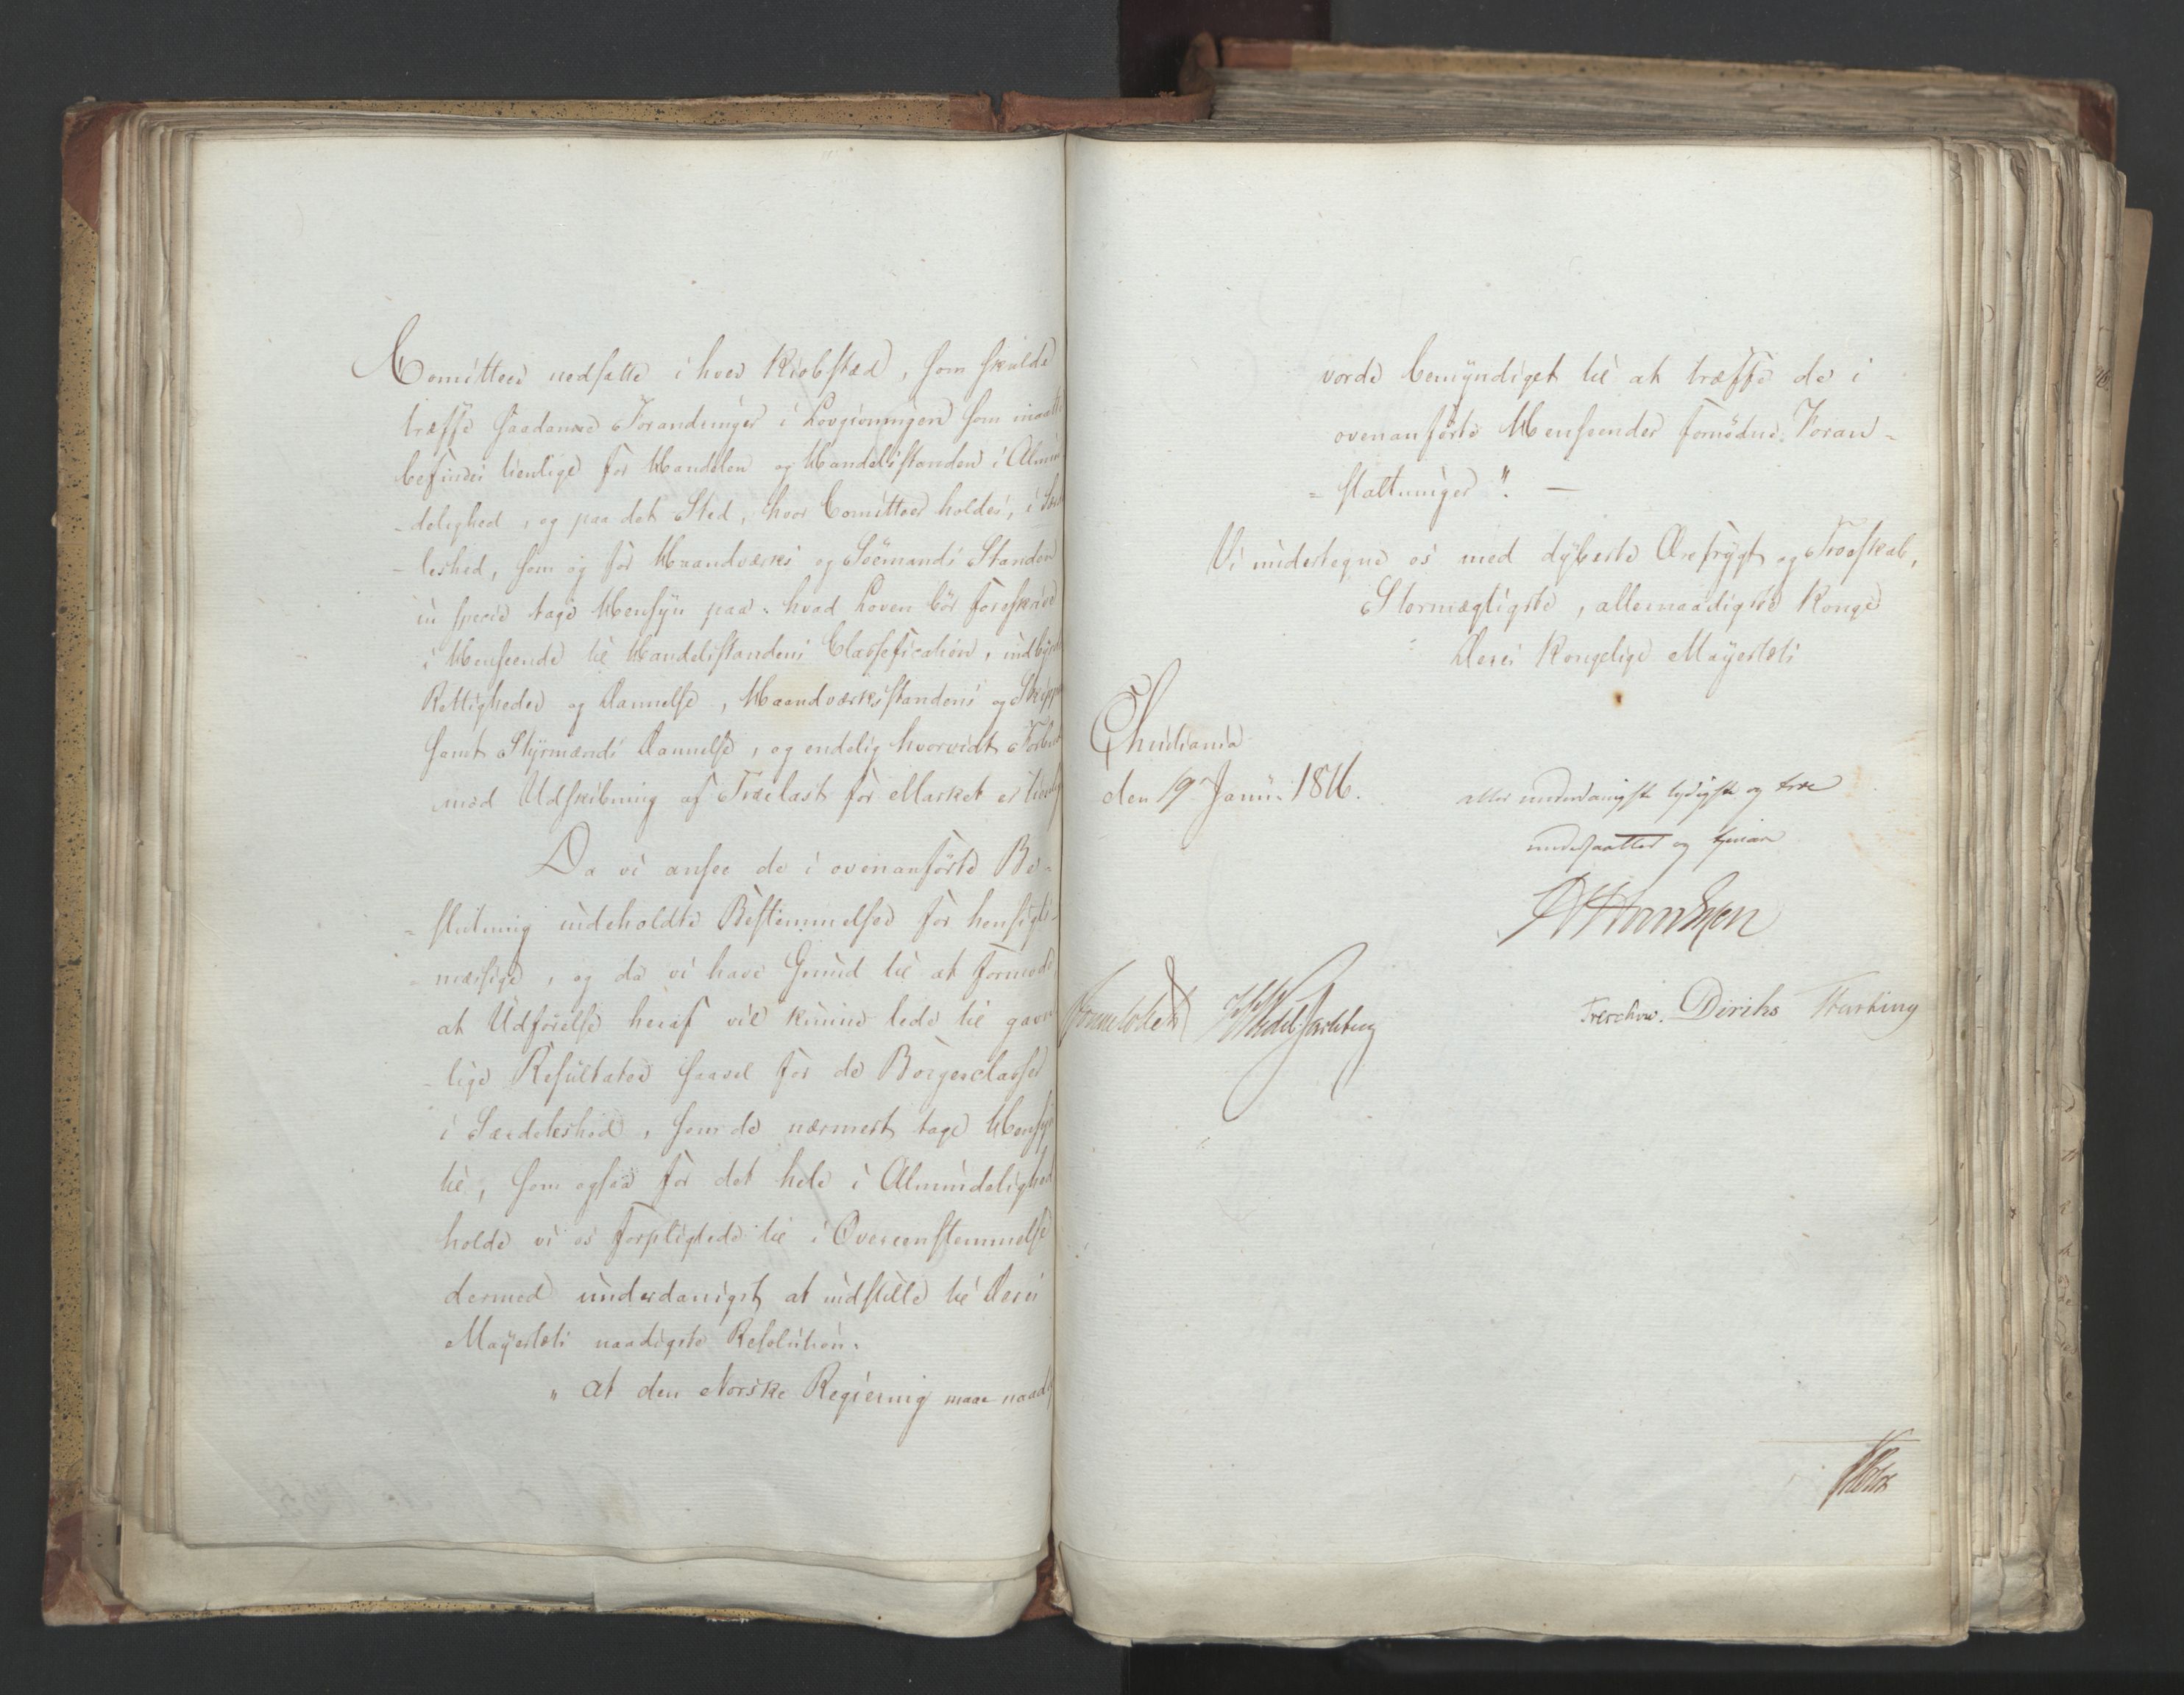 Comitteer nedsatte i hver Kiøbstæd, som skulde
træffe saadanne Forandringer i Lovgivningen som maatte
befindes tienlige for Handelen og Handelsstanden i Almin
-delighed, og paa det Sted, hvor Comitteer holdes, i Sær
-leshed, som og for Haandværks og Søemands Standen
in specie tage Hensyn paa: hvad Loven bör foreskrive
i Henseende til Handelsstandens Classefication, indbyrdes
Rettigheder og Dannelse, Haandværksstandens og Skipper
samt Styrmænds Dannelse, og endelig hvorvidt Forbud
mod Udskibning af Trælast for Marked er tienlig
Da vi ansee de i ovenanförte Be-
=slutning indeholdte Bestemmelser for hensigts-
mæssige, og da vi have Grund til at formode
at Udförelse heraf vil kunne lede til gavn
-lige Resultater saavel for de Borgerclasser
i Særdeleshed, som de nærmest tage Hensyn
til, som ogsaa for det hele i Almindelighed
holde vi os forpligtede til i Overeensstemmelse
dermed underdanigst at indstille til Deres
Mayestæts naadigste Resolution:
" at den Norske Regiering maae naadigst
vorde bemyndiget til at træffe de i
ovenanförte Henseender fornödne Foran-
=staltninger". —
Vi undertegne os med dybeste Ærefrygt og Troeskab,
Stormægtigste, allernaadigste Konge
Deres Kongelige Mayestæts
Christiania
den 19 Janu: 1816.
aller underdanigste lydigste og troe
undersaatter og tienere
Sommerfeldt HWedel Jarlsberg
Treschow. Diriks